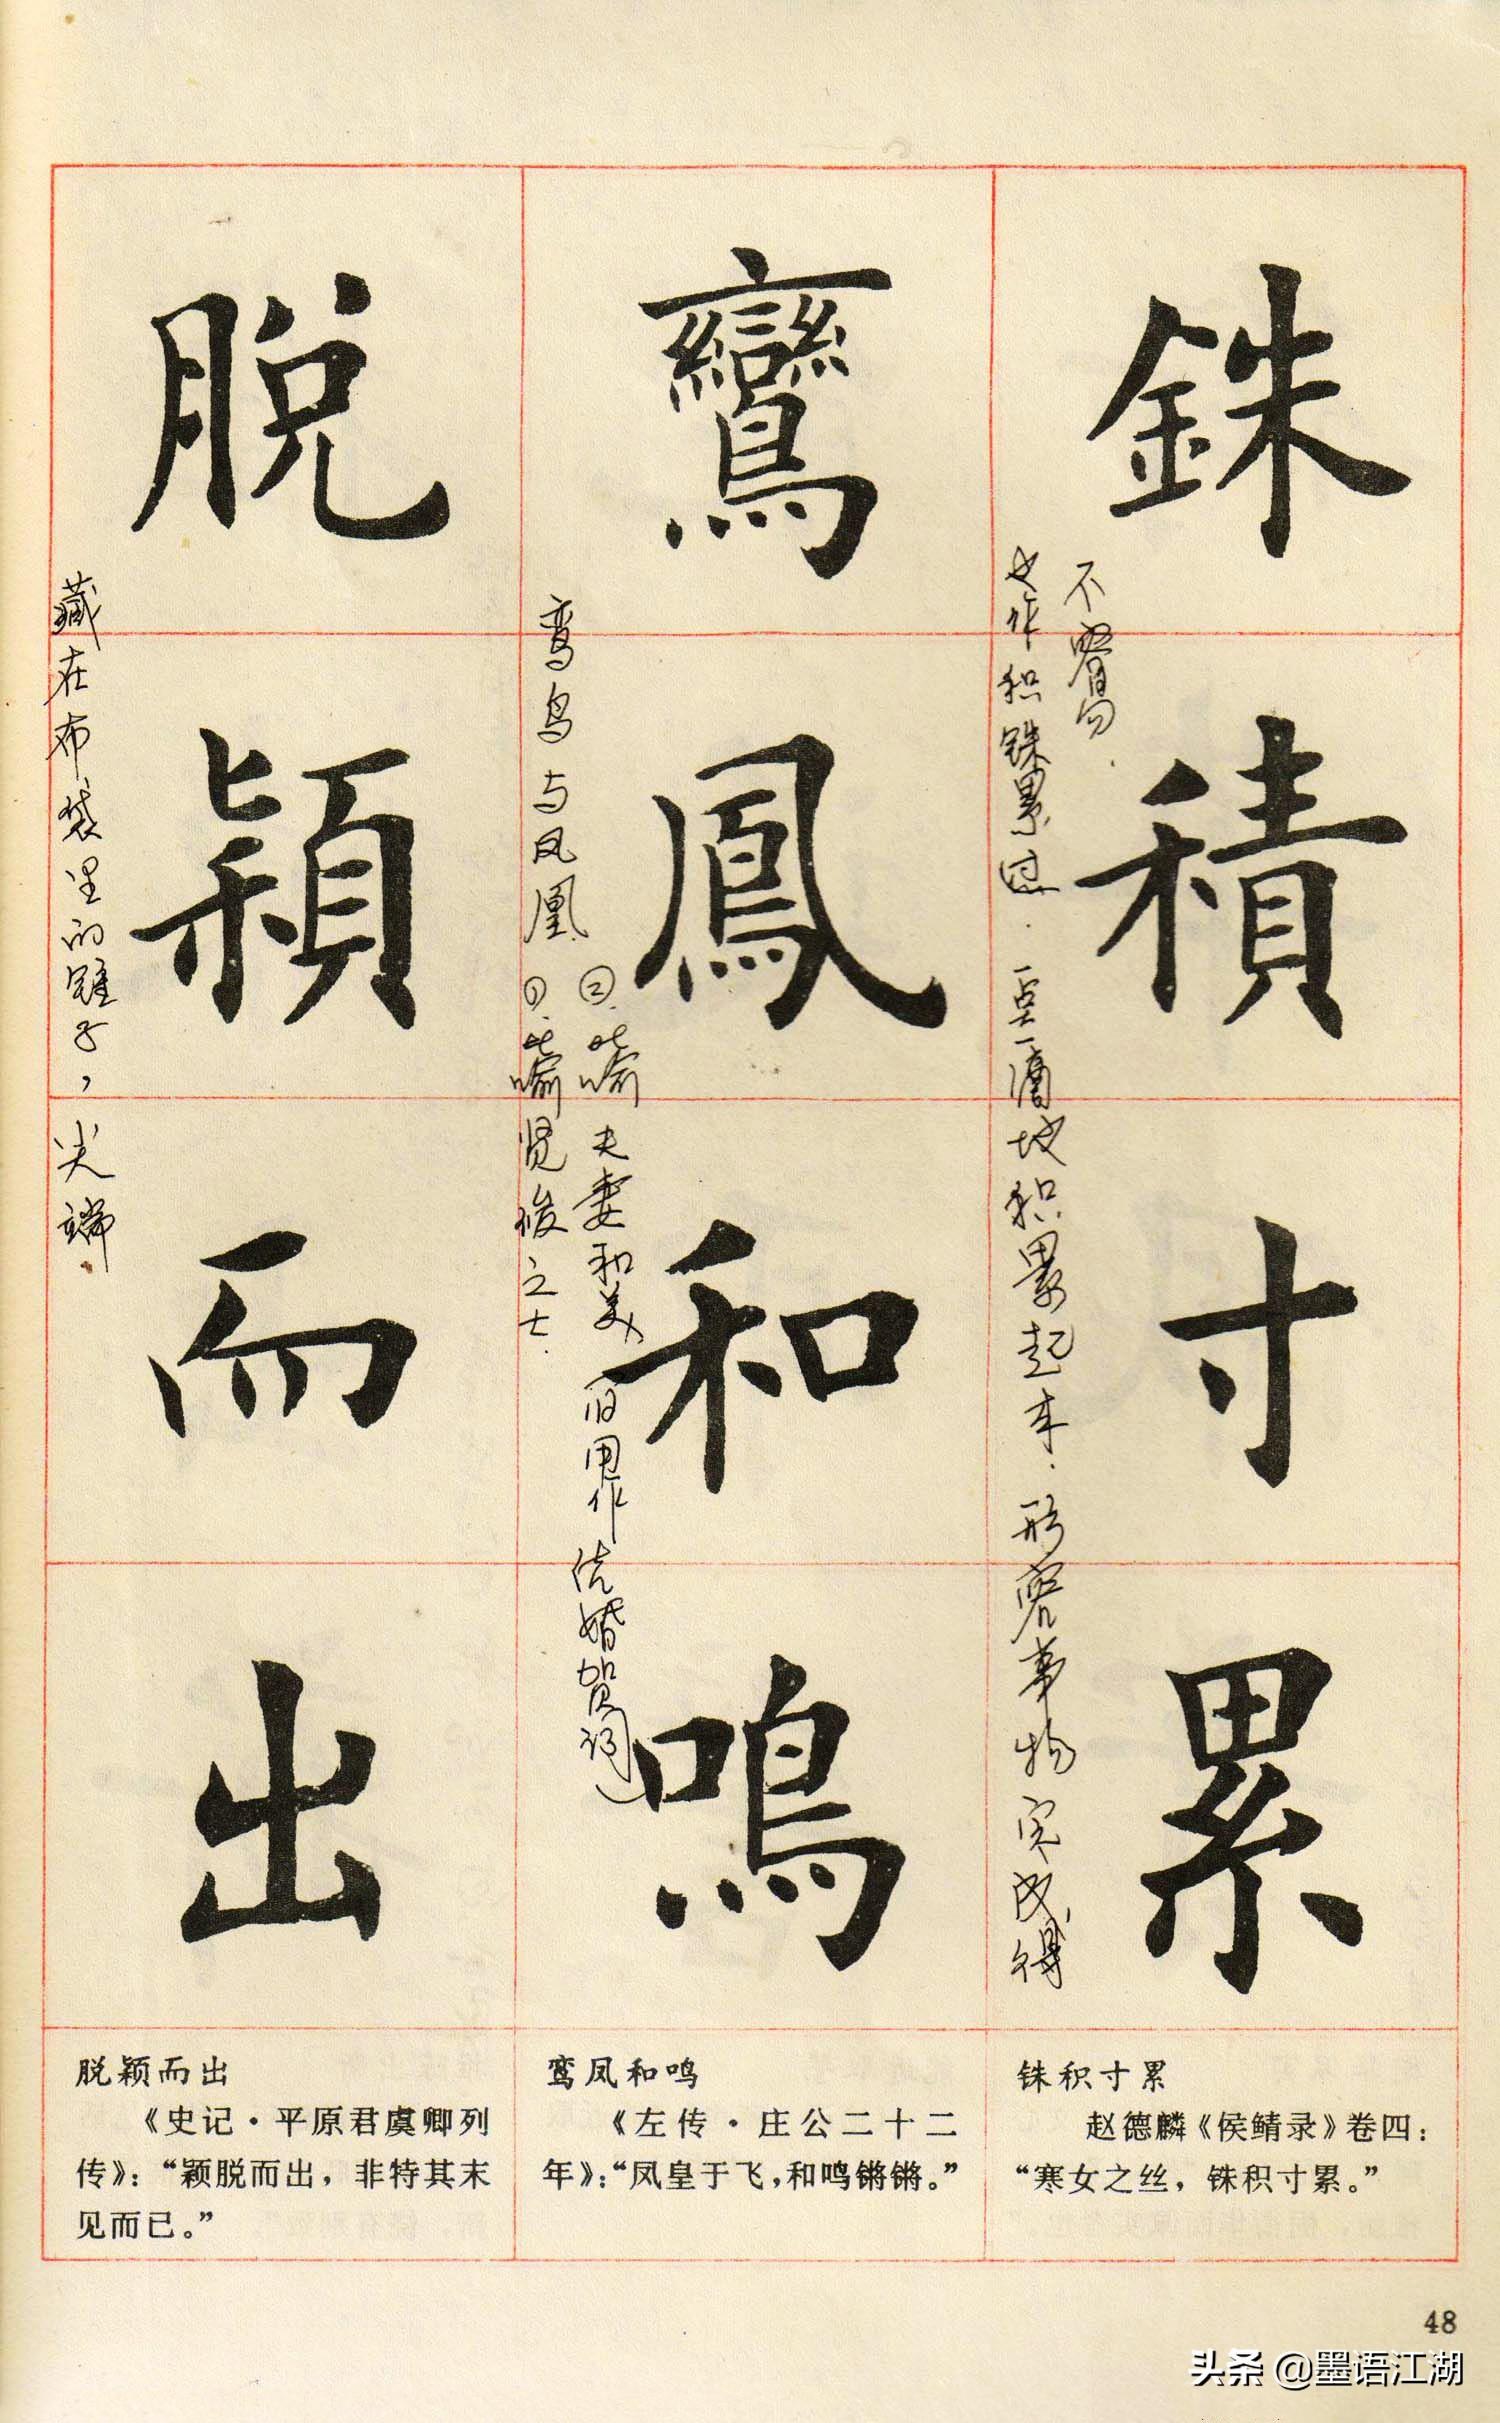 銖積寸累
也作积铢累寸.一点一滴地积累起来.形容事物完成得
不容易.
鸞鳳和鳴
鸾鸟与凤凰.①.比喻贤俊之士.
②.比喻夫妻和美
旧用作结婚贺词
脱穎而出
藏在布袋里的锥子，尖端.
铢积寸累
赵德麟《侯鲭录》卷四：
“寒女之丝，铢积寸累。”
鸾凤和鸣
《左传·庄公二十二
年》：“凤皇于飞，和鸣锵锵。”
脱颖而出
《史记·平原君虞卿列
传》：“颖脱而出，非特其末
见而已。”
48
头条 @墨语江湖